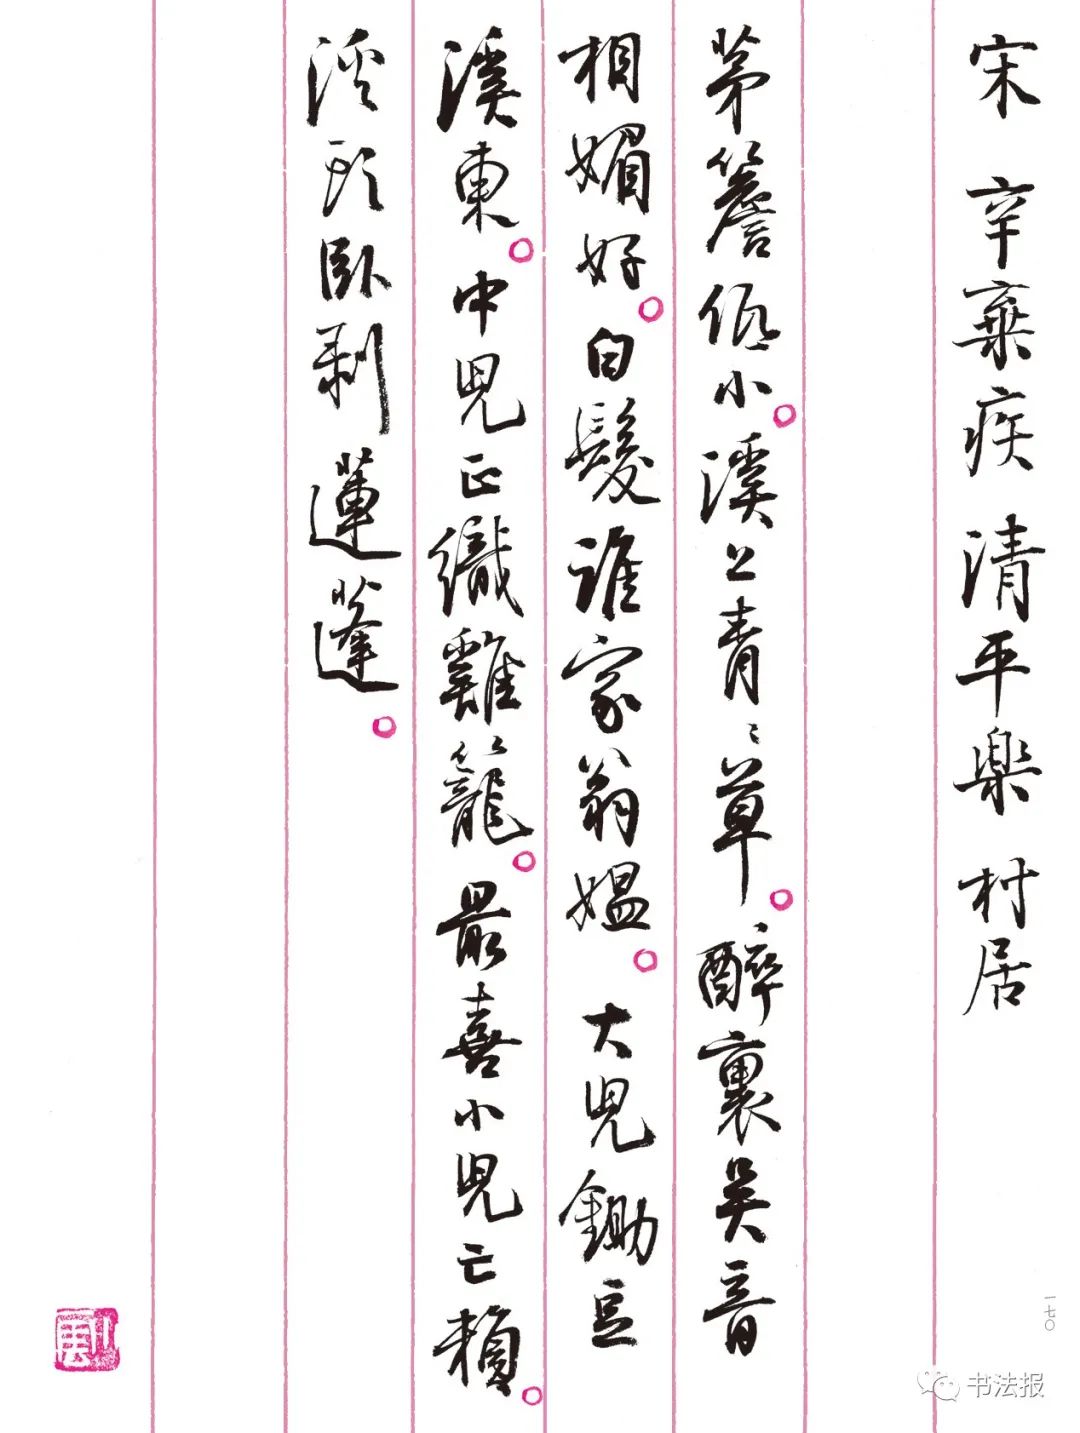 宋 辛棄疾 清平樂 村居
茅簷低小。溪上青〻草。醉裏吴音
相媚好。白髮誰家翁媼。大兒鋤豆
溪東。中兒正織雞籠。最喜小兒亡賴。
溪頭臥剥蓮蓬。
一七〇
书法报